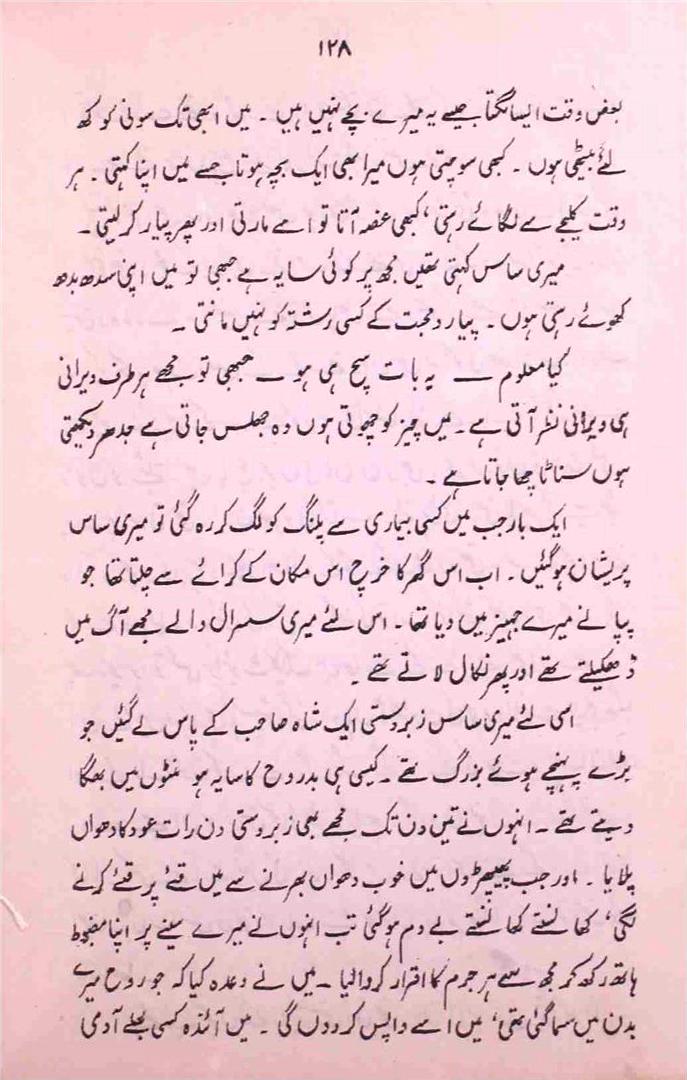 ۱۲۸
بعض وقت ایسا لگتا جیسے یہ میرے بچے نہیں ہیں ۔ میں ابھی تک سونی کوکھ
لئے بیٹھی ہوں ۔ کبھی سوچتی ہوں میرا بھی ایک بچہ ہوتا جسے میں اپنا کہتی ۔ ہر
وقت کلیجے سے لگائے رہتی، کبھی غصہ آتا تو اسے مارتی اور پھر پیار کر لیتی ۔
میری ساس کہتی تھیں مجھ پر کوئی سایہ ہے جبھی تو میں اپنی سدھ بدھ
کھوئے رہتی ہوں ۔ پیار و محبت کے کسی رشتہ کو نہیں مانتی ۔
کیا معلوم ـــ یہ بات سچ ہی ہو ـــ جبھی تو مجھے ہر طرف ویرانی
ہی ویرانی نظر آتی ہے ۔ میں چیز کو چھوتی ہوں وہ جھلس جاتی ہے جدھر دیکھتی
ہوں سناٹا چھا جاتا ہے ۔
ایک بار جب میں کسی بیماری سے پلنگ کو لگ کر رہ گئی تو میری ساس
پریشان ہو گئیں ۔ اب اس گھر کا خرچ اس مکان کے کرائے سے چلتا تھا جو
پپا نے میرے جہیز میں دیا تھا ۔ اس لئے میری سسرال والے مجھے آگ میں
ڈھکیلتے تھے اور پھر نکال لاتے تھے ۔
اسی لئے میری ساس زبردستی ایک شاہ صاحب کے پاس لے گئیں جو
بڑے پہنچے ہوئے بزرگ تھے ۔ کیسی ہی بدروح کا سایہ ہو منٹوں میں بھگا
دیتے تھے ۔ انہوں نے تین دن تک مجھے بھی زبردستی دن رات عود کا دھواں
پلایا ۔ اور جب پھیپھڑوں میں خوب دھواں بھرنے سے میں قئے پر قئے کرنے
لگی، کھانستے کھانستے بے دم ہو گئی تب انہوں نے میرے سینے پر اپنا مضبوط
ہاتھ رکھ کر مجھ سے ہر جرم کا اقرار کروا لیا ۔ میں نے وعدہ کیا کہ جو روح میرے
بدن میں سما گئی تھی، میں اسے واپس کر دوں گی ۔ میں آئندہ کسی بھلے آدمی